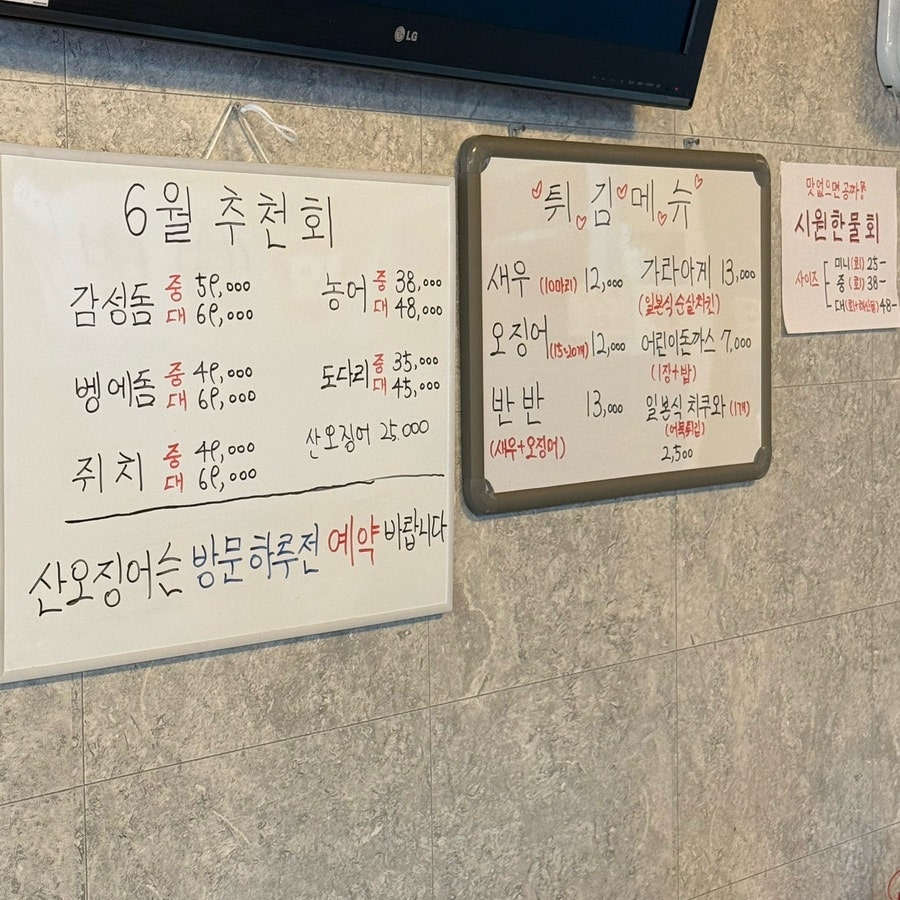 LG
6월 추천회
감성돔 중 59,000
대 69,000
벵에돔 중 49,000
대 69,000
쥐치 중 49,000
대 69,000
농어 중 38,000
대 48,000
도다리 중 35,000
대 45,000
산오징어 25.000
산오징어는 방문하루전 예약 바랍니다
튀김메뉴
새우 (10마리) 12,000
오징어 (15~20개) 12,000
반반 13,000
(새우+오징어)
가라아게 13,000
(일본식순살치킨)
어린이돈까스 7,000
(1장+밥)
일본식 치쿠와 (1개)
(어묵튀김)
2,500
맛없으면 공짜!!
시원한물회
사이즈
미니(회) 25-
중 (회) 38-
대(회+해산물) 48-